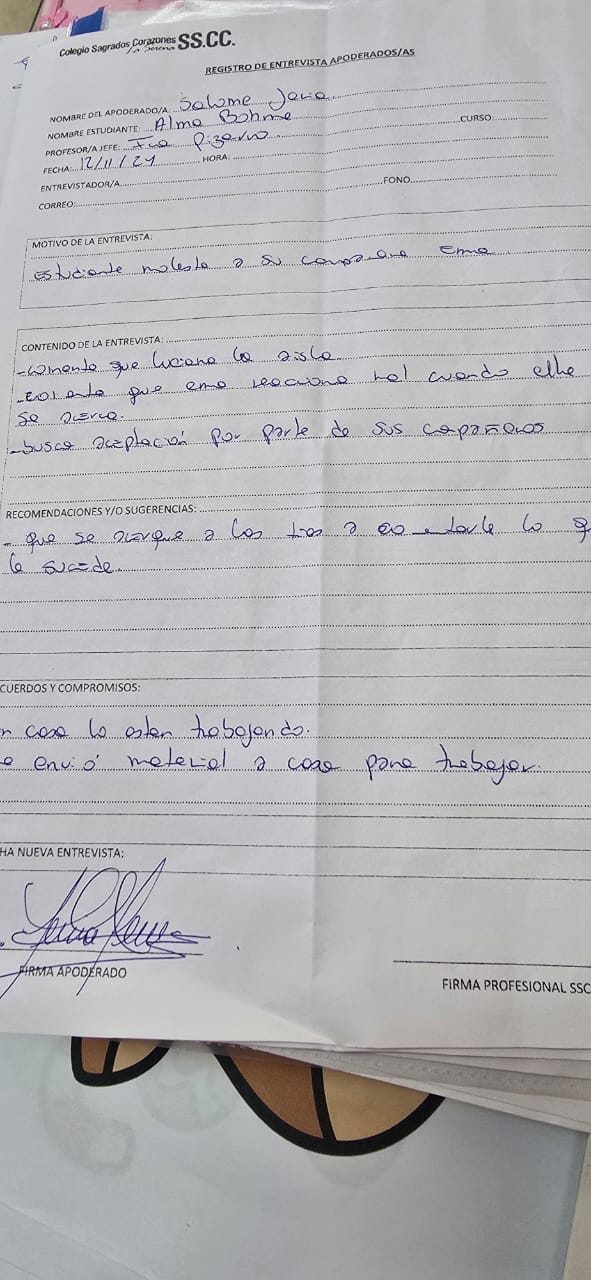 Colegio Sagrados Corazones SS.CC.
La Serena
REGISTRO DE ENTREVISTA APODERADOS/AS
NOMBRE DEL APODERADO/A: Salome Jara
NOMBRE ESTUDIANTE: Alma Bohme
CURSO:
PROFESOR/A JEFE: Pizarro
FECHA: 12/11/24 HORA:
ENTREVISTADOR/A
FONO
CORREO:
MOTIVO DE LA ENTREVISTA:
Estudiante molesta a su compañera Ema
CONTENIDO DE LA ENTREVISTA:
-comenta que luciana la aisla
-comenta que ema reacciona mal cuando ella
se acerca.
-busca aceptación por parte de sus compañeros
RECOMENDACIONES Y/O SUGERENCIAS:
- que se acerque a las tías a contarle lo q
le sucede.
CUERDOS Y COMPROMISOS:
n casa lo estan trabajando.
e envió material a casa para trabajar.
HA NUEVA ENTREVISTA:
FIRMA APODERADO
FIRMA PROFESIONAL SSC